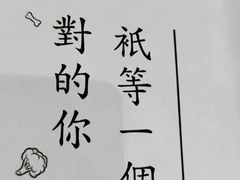 衹等一個
對的你